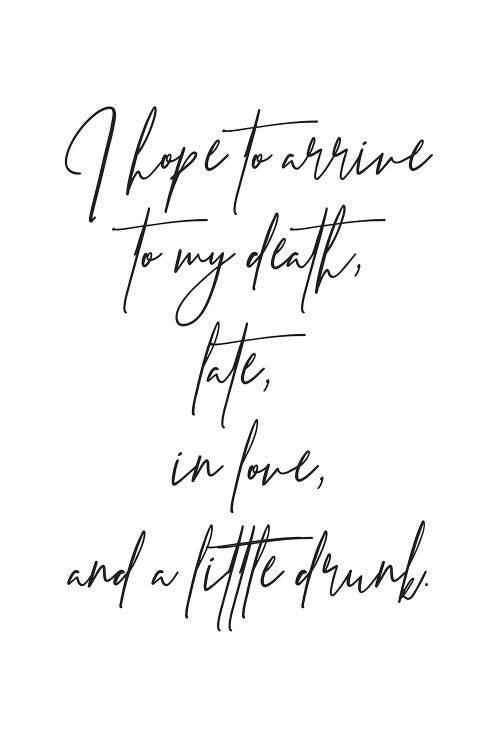 I hope to arrive
to my death,
late,
in love,
and a little drunk.